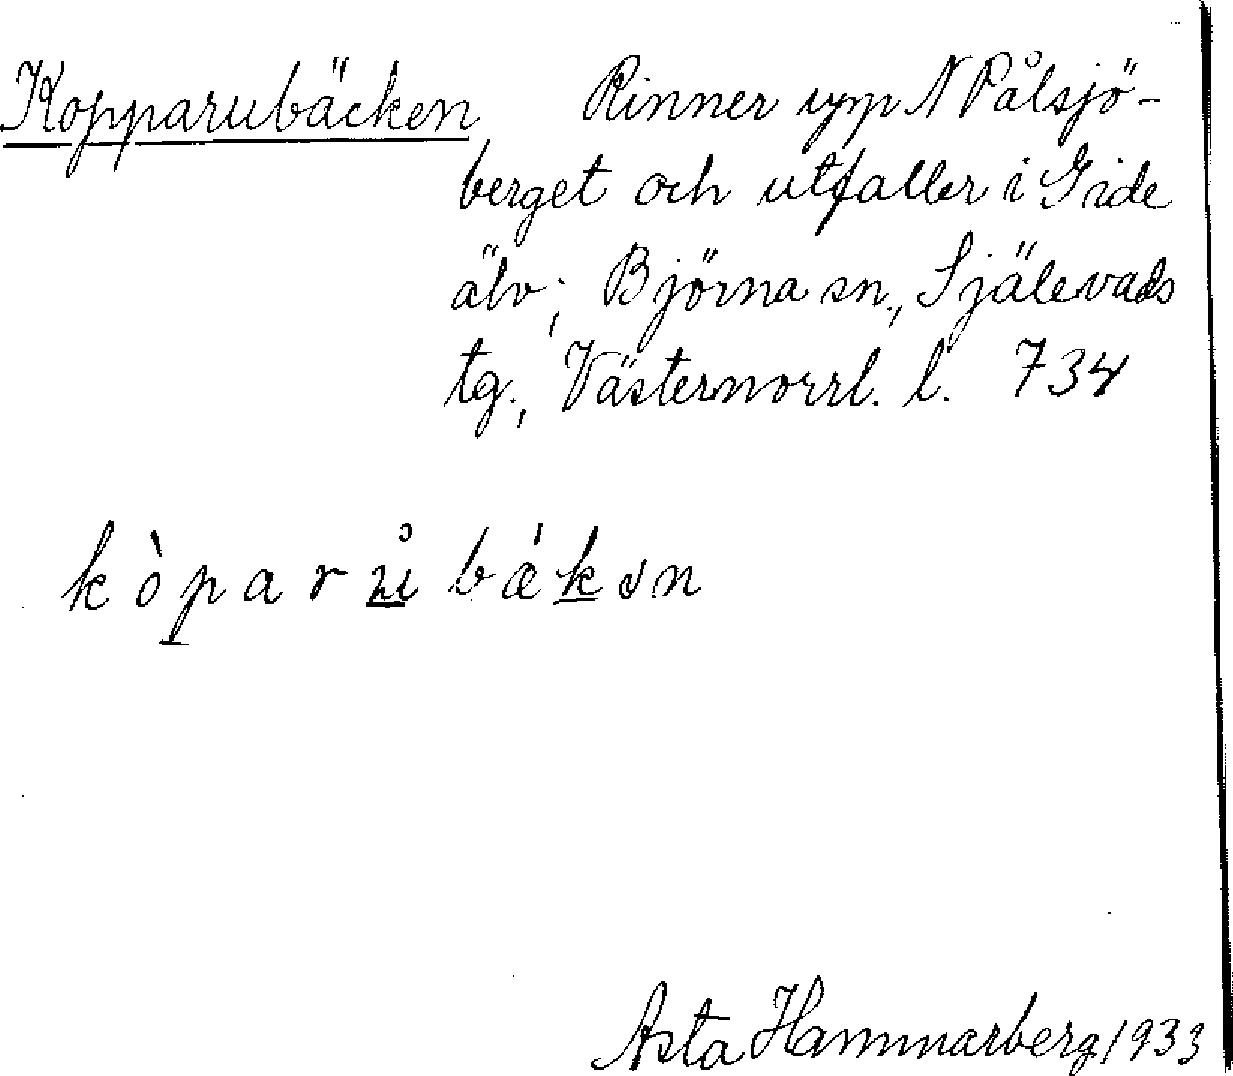 Kopparubäcken Rinner upp N Pålsjö-
berget och utfaller i Gide
älv; Björna sn., Själevads
tg., Västernorrl. l. 734
kòparů̱bä́ḵən
Asta Hammarberg 1933